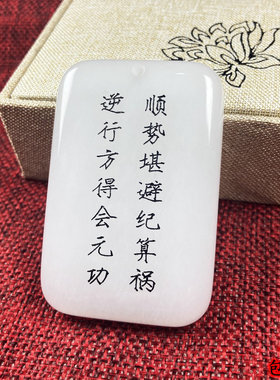 顺势堪避纪算祸
逆行方得会元功